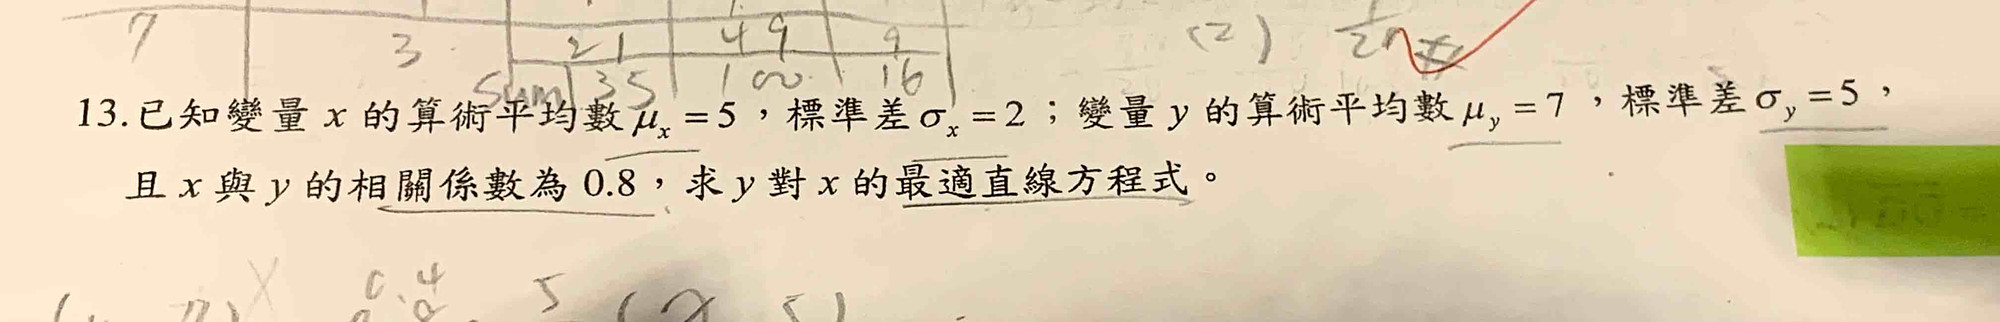 7 3 21 49 9 (2)
sum 35 100 16
13.已知變量 x 的算術平均數 μx = 5，標準差 σx = 2；變量 y 的算術平均數 μy = 7，標準差 σy = 5，
且 x 與 y 的相關係數為 0.8，求 y 對 x 的最適直線方程式。
0.4 5